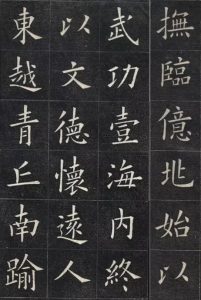 撫臨億兆始以
武功壹海內終
以文德懷遠人
東越青丘南踰